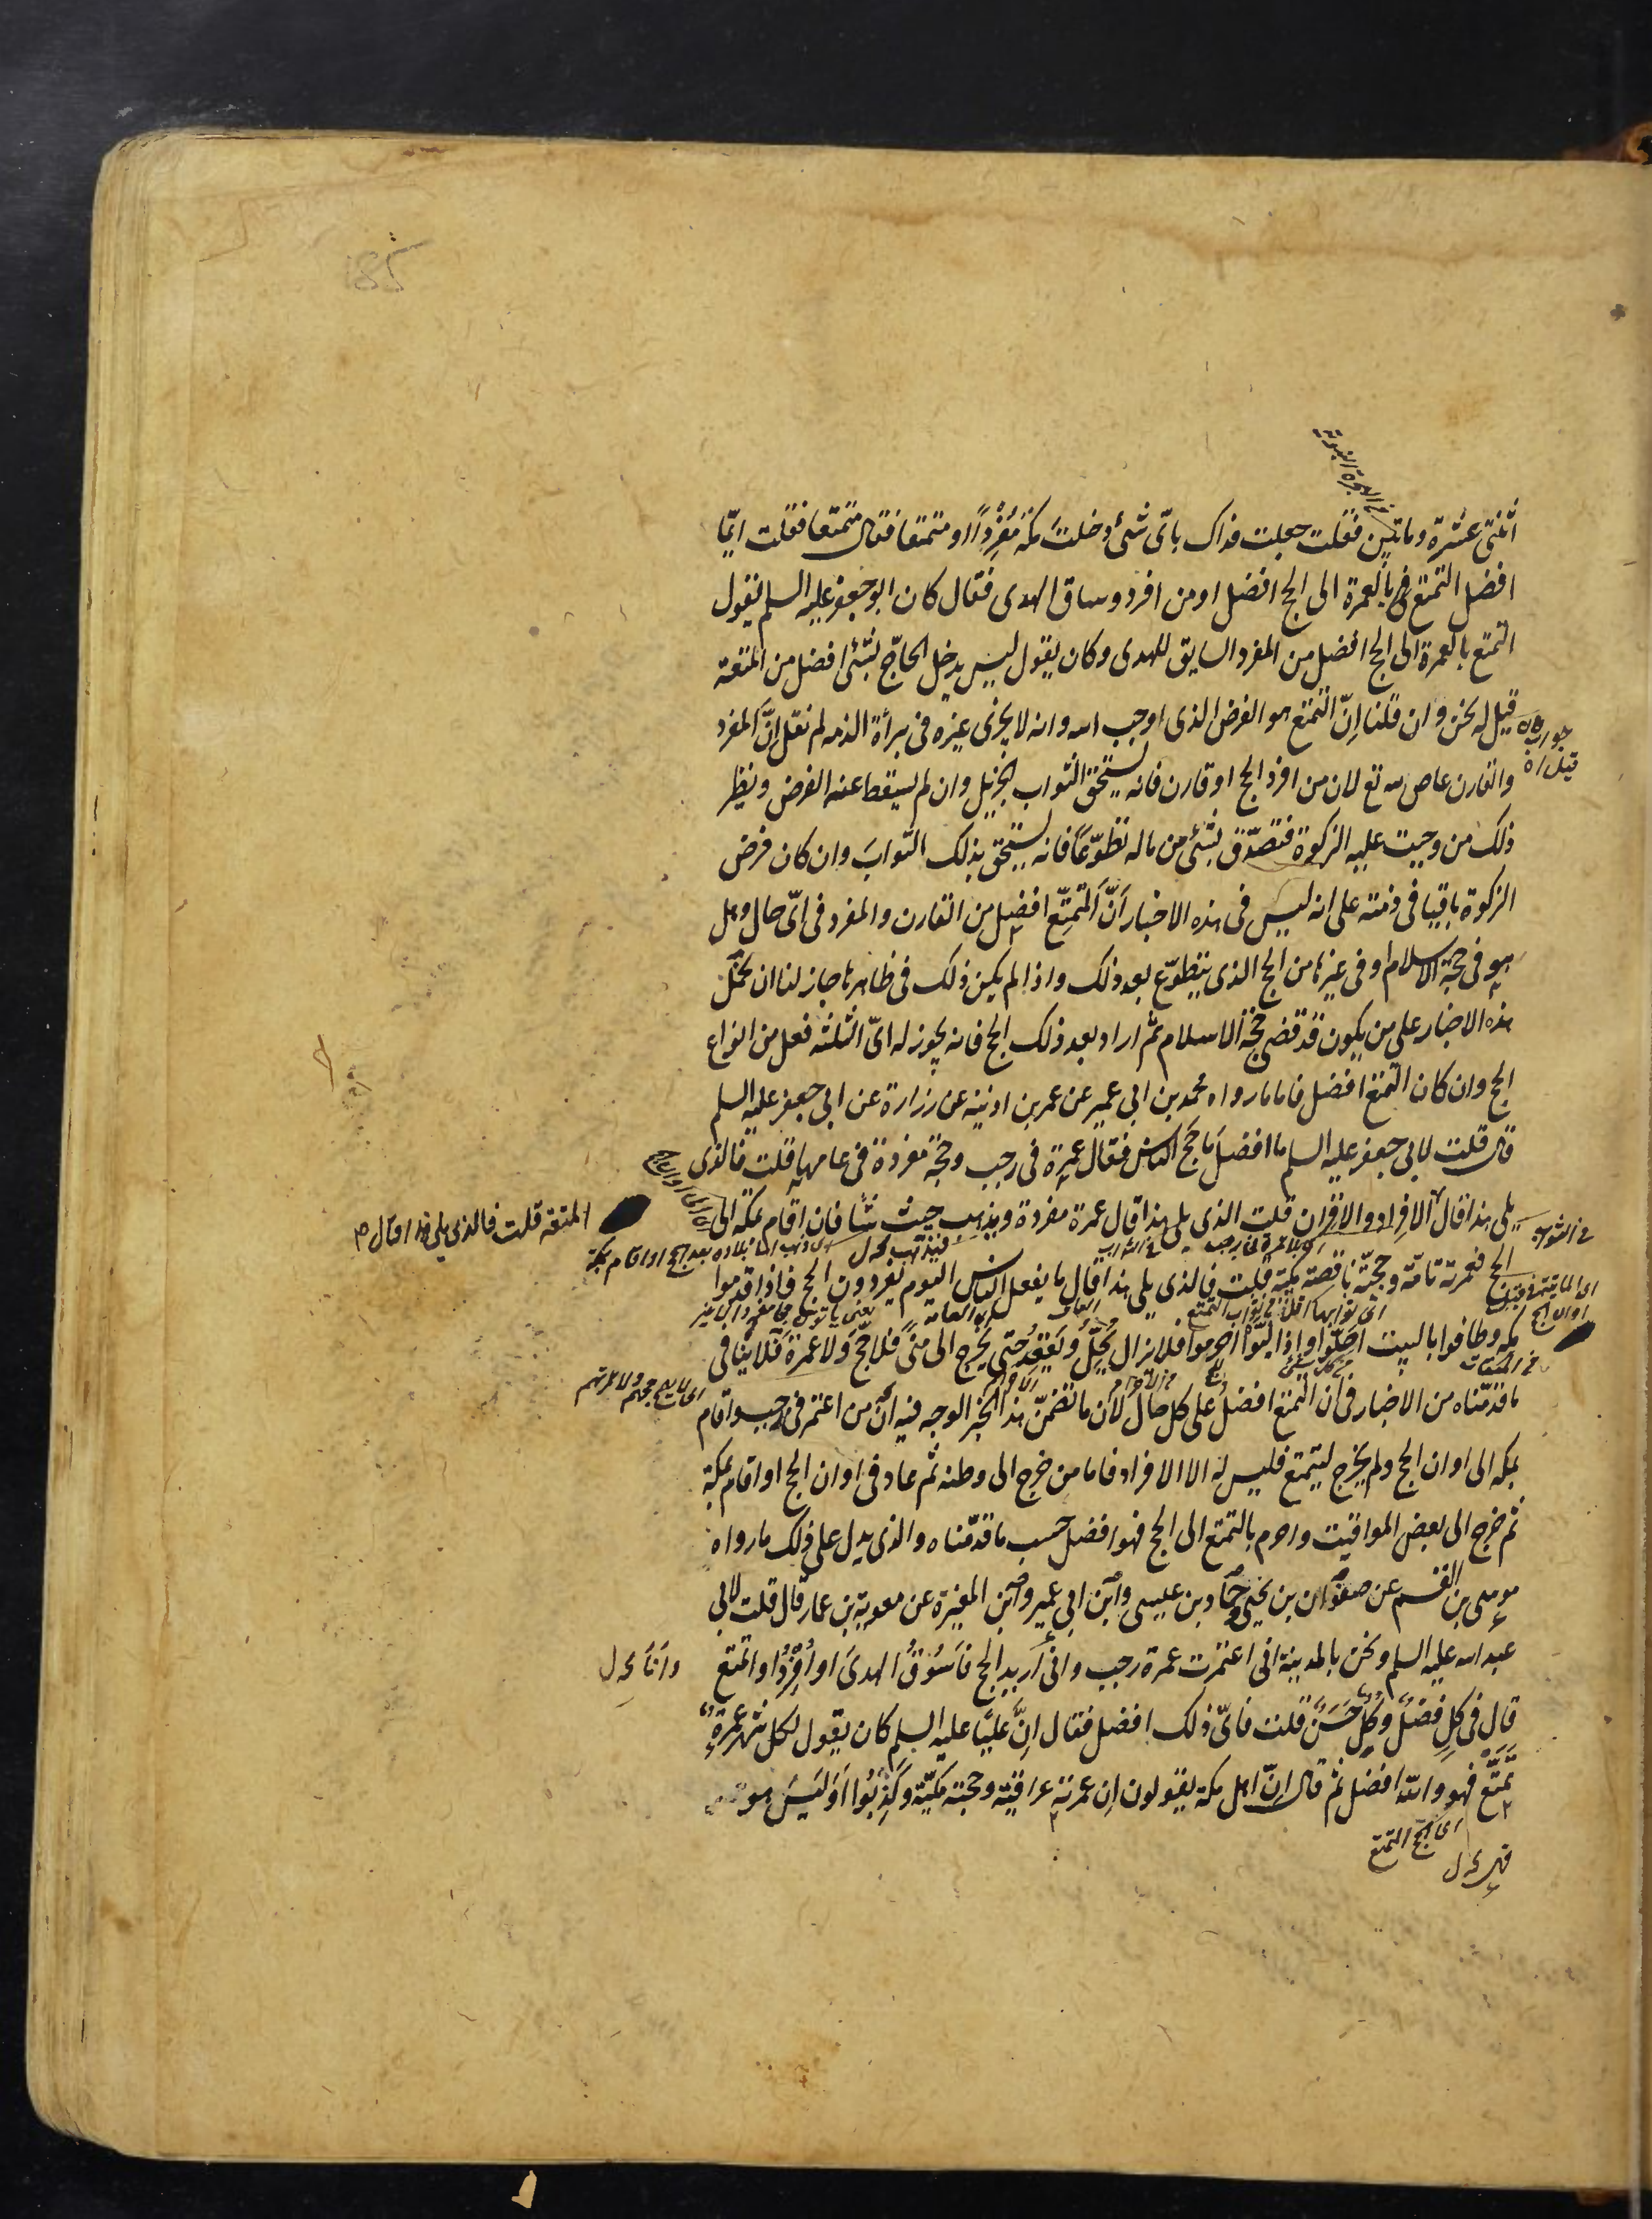 185
من الهجرة النبوية
اثنتى عشرة ومائتين فقلت جعلت فداك باىّ شئ دخلتَ مكة مُفْرِداً او متمتعا فقال متمتعا فقلت ايّما
افضل التمتع بالعمرة الى الحج افضل او من افرد وساق الهدى فقال كان ابو جعفر عليه السلم يقول
التمتع بالعمرة الى الحج افضل من المفرد السايق للهدى وكان يقول ليس يدخل الحاجّ بشئ افضل من المتعة
قيل له نحن وان قلنا اِنّ التمتع هو الفرض الذى اوجب الله وانه لا يجزى غيره فى برأة الذمه لم نقل اِنّ المفرد
والقارن عاص لله تع لان من افرد الحج او قارن فانه يستحق الثواب الجزيل وان لم يسقط عنه الفرض ونظير
ذلك من وجبت عليه الزكوة فتصدّق بشئ من ماله تطوّعاً فانه يستحق بذلك الثوابَ وان كان فرض
الزكوة باقيا فى ذمته على انه ليس فى هذه الاخبار اَنّ المتمتِّع افضل من القارن والمفرد فى اىّ حال وهل
هو فى حجة الاسلام او فى غيرها من الحج الذى يتطوّع بعد ذلك واذا لم يكن ذلك فى ظاهرها جاز لنا ان نحمل
هذه الاخبار على من يكون قد قضى حجّة الاسلام ثم اراد بعد ذلك الحج فانه يجوز له اىّ الثلثه فعل من انواع
الحج وان كان التمتع افضل فاما ما رواه محمد بن ابى عمير عن عمر بن اذينه عن زرارة عن ابى جعفر عليه السلم
قال قلت لابى جعفر عليه السلم ما افضلُ ما حَجّ الناس فقال عمرة فى رجب وحجّة مفردة فى عامها قلت فالذى
يلى هذا قال المتعة قلت فالذى يلى هذا قال الافراد والاقران قلت الذى يلى هذا قال عمرة مفردة ويذهب حيث شا فان اقام بمكة الى
الحج فعمرته تامّة وحجّته ناقصة مكيّة قلت فالذى يلى هذا قال ما يفعل الناس اليوم يفردون الحج فاذا قدموا
مكه وطافوا بالبيت احلّوا واذا لبّوا احرموا فلا يزال يُحِلُّ ويَعْقِدُ حتى يخرج الى منى فلا حجّ ولا عمرة فلا ينافى
ما قدّمناه من الاخبار فى ان التمتع افضلُ على كل حال لان ما تضمّن هذا الخبر الوجه فيه انّ من اعتمر فى رجب واقام
بمكه الى اوان الحج ولم يخرج ليتمتع فليس له الا الافراد فاما من خرج الى وطنه ثم عاد فى اوان الحج او اقام بمكة
ثم خرج الى بعض المواقيت واحرم بالتمتع الى الحج فهو افضل حسب ما قدّمناه والذى يدل على ذلك ما رواه
موسى بن القسم عن صفوان بن يحيى وحمّاد بن عيسى وابن ابى عمير وابن المغيرة عن معوية بن عمار قال قلت لابى
عبد الله عليه السلم ونحن بالمدينة انى اعتمرت عمرة رجب وانى اُريد الحج فاَسُوقُ الهدىَ او اُفْرِدُ او اتمتع
قال فى كلٍ فضلٌ وكلٌ حَسَنٌ قلت فاىّ ذلك افضل فقال اِنّ عليّا عليه السلم كان يقول لكل شهر عمرةٌ
تَمَتَّع فهو واللّه افضل ثم قال اِنّ اهل مكة يقولون ان عمرته عراقيّة وحجته مكيّة وكَذِبُوا اَوَلَيْسَ هو
اى الحج التمتع